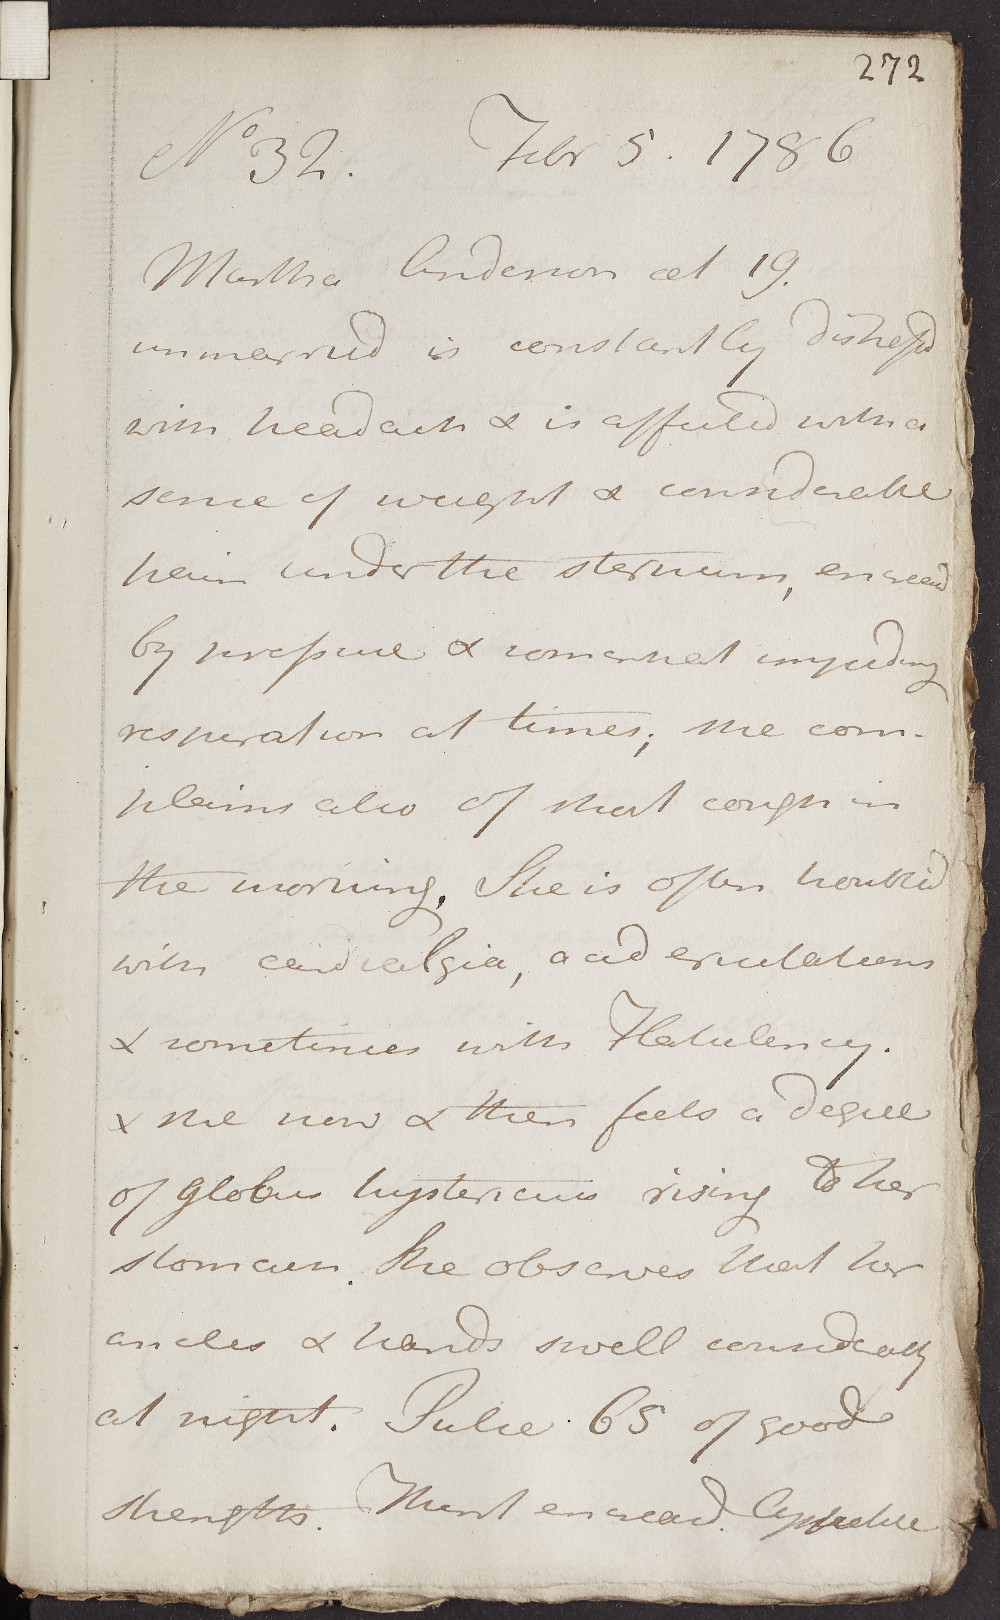 272
No 32. Febr 5. 1786
Martha Anderson æt 19.
unmarried is constantly distress'd
with headach & is affected with a
sense of weight & considerable
pain under the sternum, encreased
by pressure & somewhat impeding
respiration at times; she com-
plains also of short cough in
the morning. She is often troubled
with cardialgia, acid eructations
& sometimes with Flatulency.
& she now & then feels a degree
of globus hystericus rising to her
stomach. She observes that her
ancles & hands swell considerably
at night. Pulse 65 of good
strength. Thirst encreased. Appetite